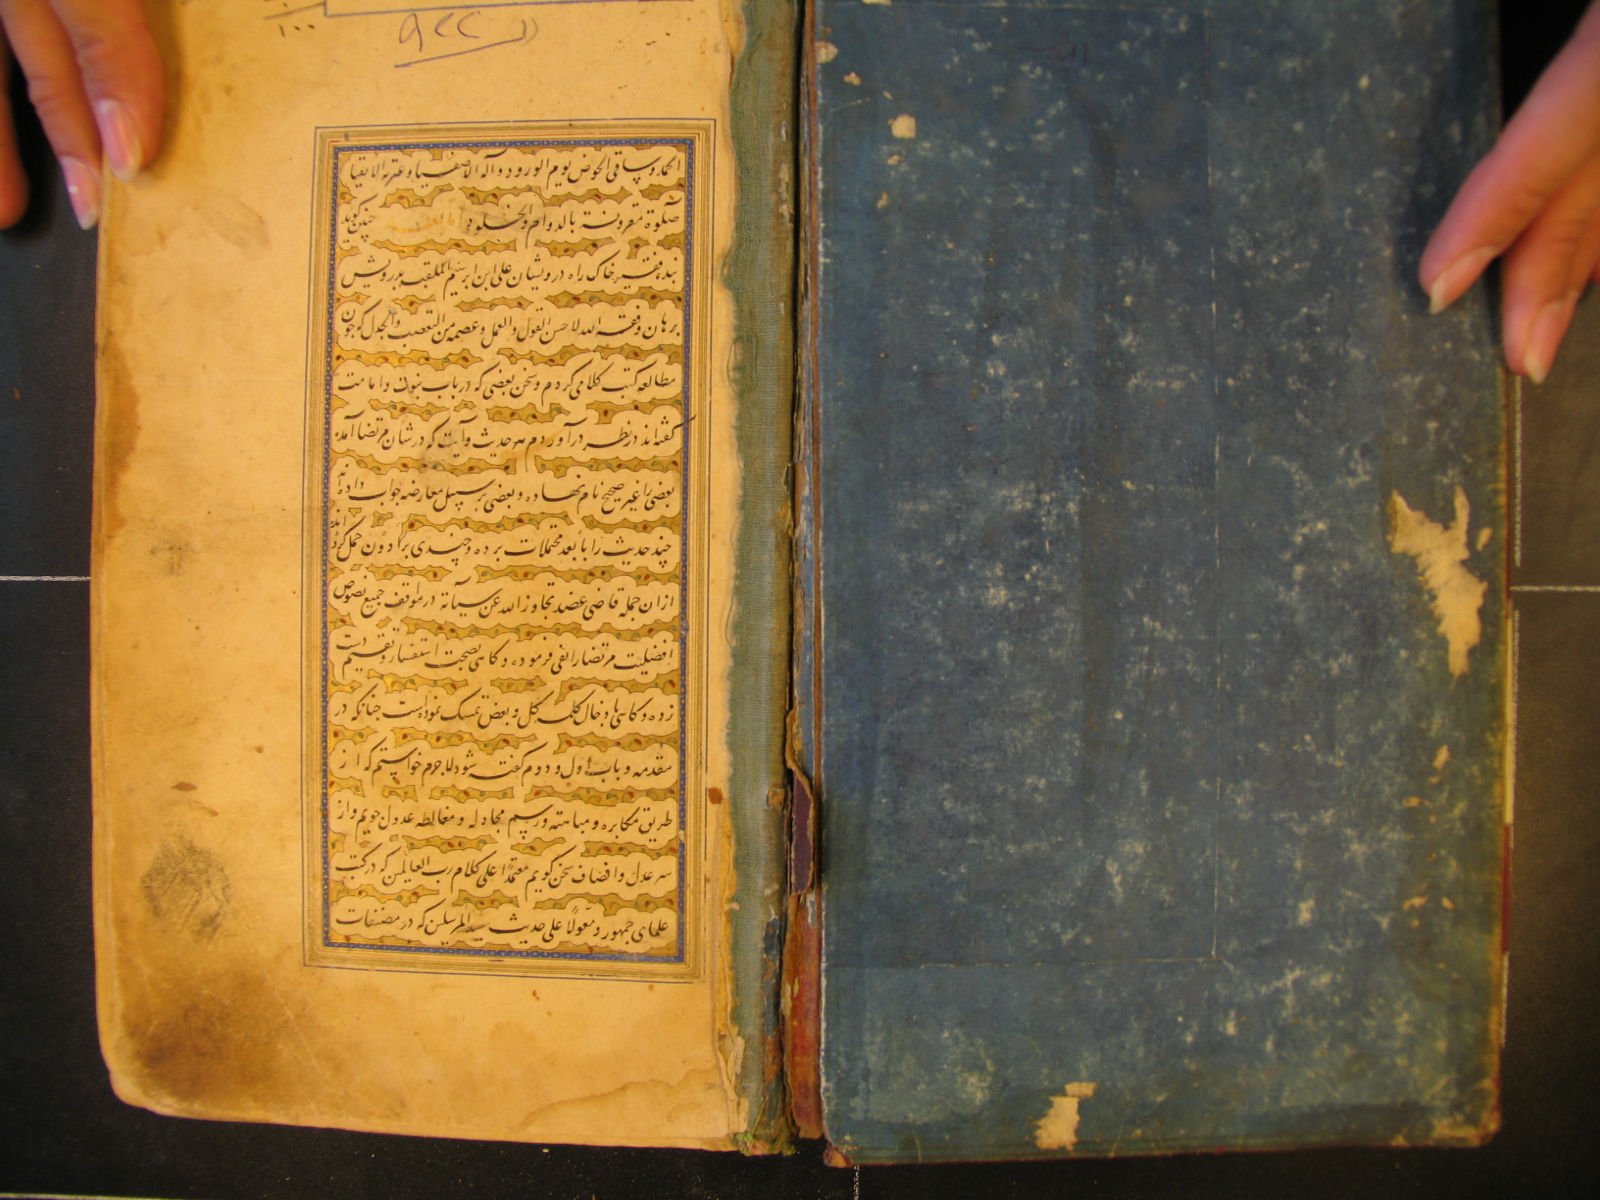 ۱۰۰۰
۹۲۲
المحمود ساقی الحوض یوم الورود و آله الاصفیا و عترته الاتقیا
صلوة مقرونة بالدوام والخلود اما بعد چنین گوید
بنده فقیر خاک راه درویشان علی ابن ابرهیم الملقب بدرویش
برهان وفقه الله لاحسن القول والعمل وعصمه من التعصب والجدل که چون
مطالعه کتب کلامی کردم و سخن بعضی که در باب نبوت و امامت
گفته اند در نظر درآوردم هر حدیث و آیت که در شان مرتضا آمده
بعضی را غیر صحیح نام نهاده و بعضی بر سبیل معارضه جواب داده اند
چند حدیث را بابعد محتملات برده و چندی بر ادون حمل کرده اند
ازان جمله قاضی عضد تجاوز الله عن سیآته در مواقف جمیع نصوص
افضلیت مرتضا را نفی فرموده و کاهی بصحت استفسار و تقسیم دست
زده و کاهی بادخال کلمه کل و بعض تمسک نموده است چنانکه در
مقدمه و باب اول و دوم گفته شود لاجرم خواستم که از
طریق مکابره و مباهته و رسم مجادله و مغالطه عدول جویم و از
سر عدل و انصاف سخن گویم معتمدًا علی کلام رب العالمین که در کتب
علمای جمهور و معولًا علی حدیث سید المرسلین که در مصنفات